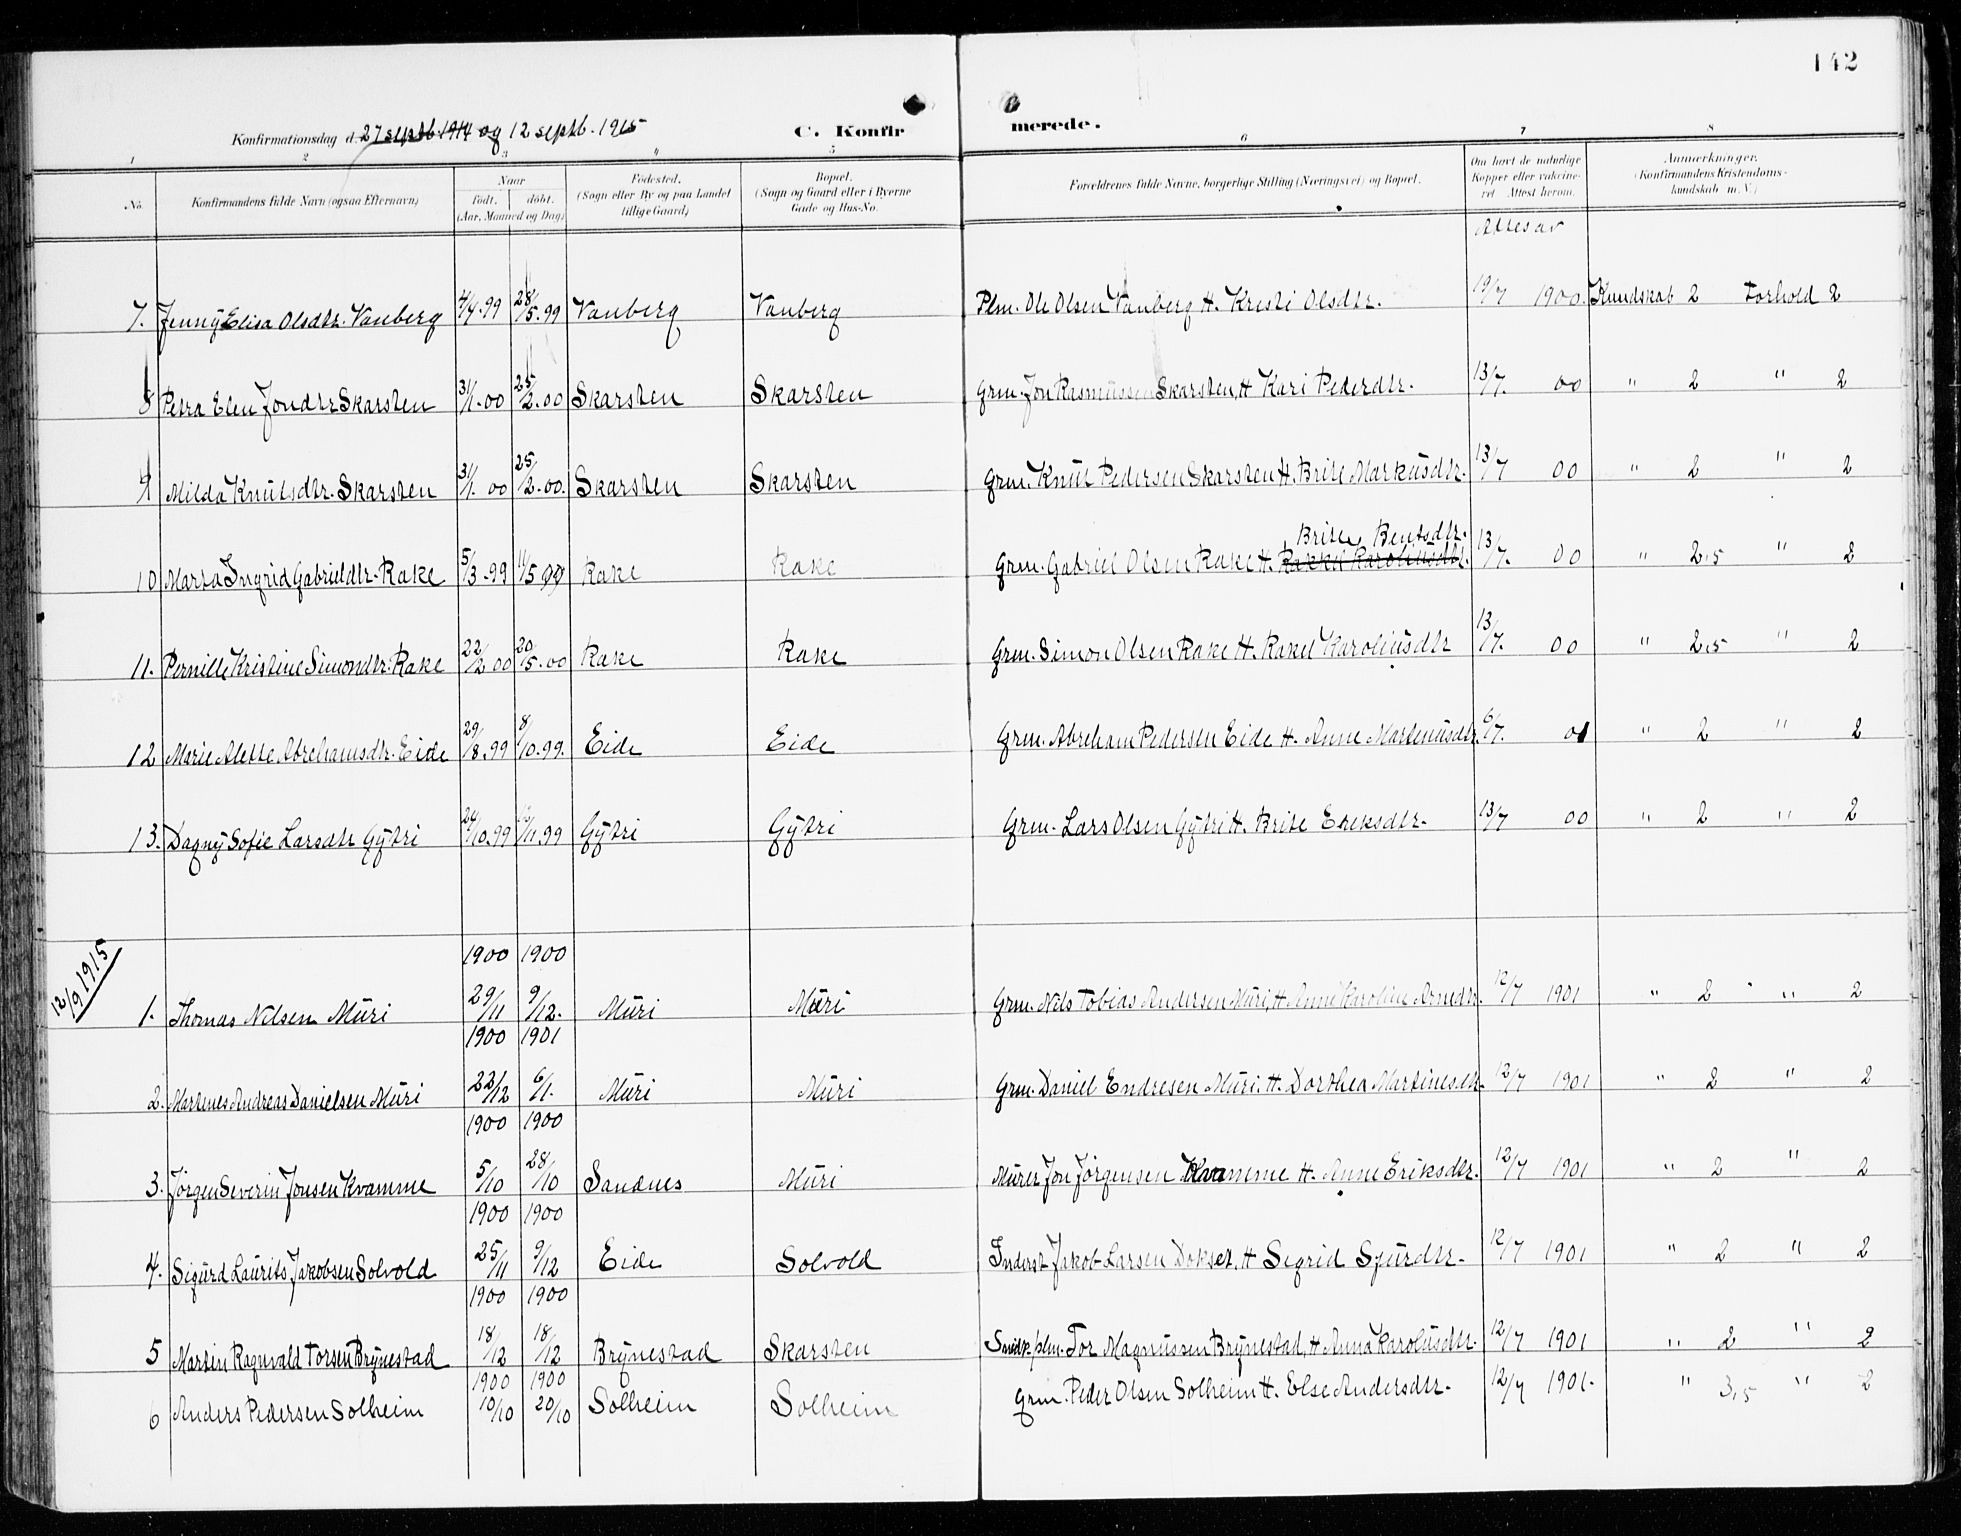 142
Konfirmationsdag d. 27 septb. 1914 og 12 septb. 1915 C. Konfirmerede.
1 2 3 4 5 6 7 8
No. Konfirmandens fulde Navn (ogsaa Efternavn) Naar født. døbt. (Aar, Maaned og Dag) Fødested. (Sogn eller By og paa Landet tillige Gaard) Bopæl. (Sogn og Gaard eller i Byerne Gade og Hus-No. Forældrenes fulde Navne, borgerlige Stilling (Næringsvei) og Bopæl. Om havt de naturlige Kopper eller vaccineret Attest herom. Anmærkninger. (Konfirmandens Kristendomskundskab m. V.)
7. Jenny Elisa Olsdtr. Vanberg 4/4.99 28/5.99 Vanberg Vanberg Plm. Ole Olsen Vanberg H. Kristi Olsdtr. 19/7 1900. Kundskab 2 Forhold 2
8 Petra Elen Jondtr Skarsten 31/1.00 25/2.00 Skarsten Skarsten Grm. Jon Rasmussen Skarsten, H Kari Pedersdtr. 13/7. 00 " 2 " 2
9 Milda Knutsdtr. Skarsten 31/1.00 25/2.00. Skarsten Skarsten Grm. Knut Pedersen Skarsten H. Brite Markusdtr. 13/7 00 " 2 " 2
Brite Bentsdtr.
10 Marta Ingrid Gabrieldtr. Rake 5/3.99 11/5 99 Rake Rake Grm. Gabriel Olsen Rake H. Rakel Karoliusdtr. 13/7. 00 " 2,5 " 2
11. Pernille Kristine Simondtr. Rake 22/2.00 20/5.00 Rake Rake Grm. Simon Olsen Rake H. Rakel Karoliusdtr 13/7. 00 " 2,5 " 2
12 Marie Alette Abrehamsdtr. Eide 29/8.99 8/10.99. Eide Eide Grm. Abreham Pedersen Eide H. Anne Martenusdtr. 6/7. 01 " 2 " 2
13. Dagny Sofie Larsdtr Gytri /10.99 /11.99 Gytri Gytri Grm. Lars Olsen Gytri H. Brite Eriksdtr. 13/7 00 " 2 " 2
12/9 1915
1900 1900
1. Thomas Nilsen Muri 29/11 9/12. Muri Muri Grm. Nils Tobias Andersen Muri, H. Anne Karoline Arnedtr. 12/7 1901 " 2 " 2
1900 1901
2. Martines Andreas Danielsen Muri 22/12 6/1. Muri Muri Grm. Daniel Endresen Muri. H. Dorthea Martinesdtr. 12/7 1901 " 2 " 2
1900 1900
3. Jørgen Severin Jonsen Kvamme 5/10 28/10 Sandnes Muri Murer Jon Jørgensen Kvamme H. Anne Eriksdtr. 12/7 1901 " 2 " 2
1900 1900
4. Sigurd Laurits Jakobsen Solvold 25/11 9/12 Eide Solvold Inderst Jakob Larsen Dokset, H Sigrid Sjurdtr. 12/7 1901 " 2 " 2
1900 1900
5 Martin Ragnvald Torsen Brynestad 18/12 18/12 Brynestad Skarsten Snidk/plm. Tor Magnussen Brynestad, H Anna Karolusdtr. 12/7 1901 " 2 " 2
1900 1900
6 Anders Pedersen Solheim 10/10 20/10 Solheim Solheim Grm. Peder Olsen Solheim H. Else Andersdtr. 12/7 1901. " 3,5 " 2